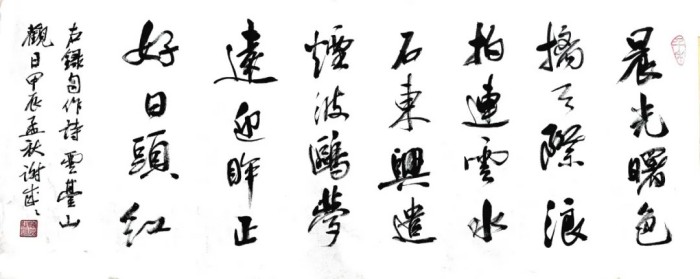 晨光曙色
天際浪
拍連雲水
石東興遣
煙波鷗夢
遠迎眸正
好日頭紅
右錄自作詩雲臺山
觀日甲辰孟秋謝